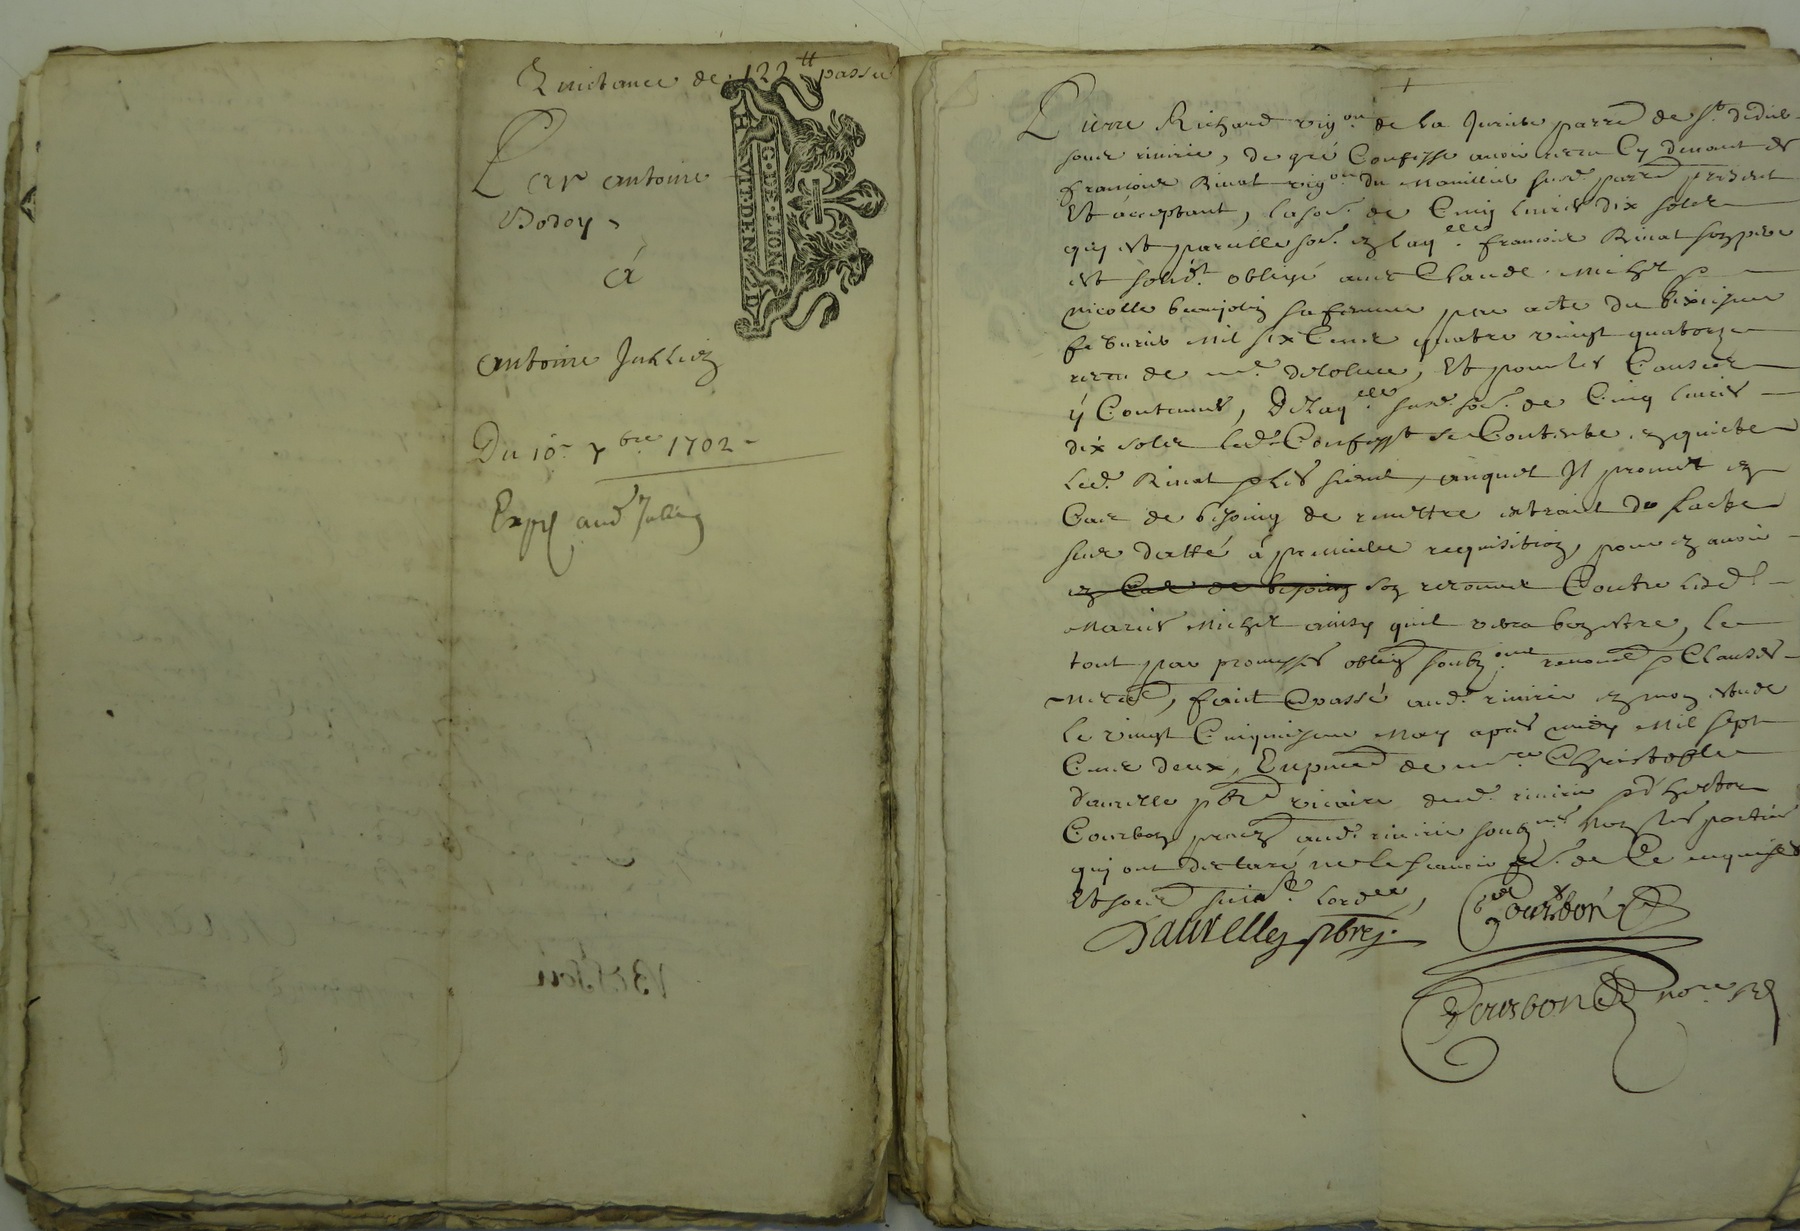 Quictance de 122tt passée
Par antoine
Bodoy
à
antoine Jullien
Du 10e 7bre 1702
Expé aud Jullien
G. DE. LION
HVIT. DEN. 2 D
Pierre Richard vigon de la Juriee parre de st didier
soubz riuirie, de gré Confesse auoir receu Cy deuant de
francois Rivat vigon du susd. parre present
Et acceptant, la so. de Cinq liures dix solz
qui est pareille so. en laqelle francois Rivat son pere
est solidt obligé auec Claude Michel p
nicolle beaujolin sa femme par acte du sixiesme
feburier mil six Cent quatre vingt quatorze
receu de me delolme, Et pour les Causes
y Contenues, De laqelle susd. so. de Cinq liures
dix solz led. Confesst se Contente, en quicte
led. Rivat p les siens, auquel Il promet en
Cas de besoing de remettre extraict de lacte
sus datté à premiere requisition, pour en auoir
en Cas de besoing son recours Contre lesd.
Mariés Michel ainsy quil verra bon estre, le
tout par promesses oblig soubzons renonc p Clauses
necess, faict & passé aud. riuirie en mon estude
le vingt Cinquiesme May apres midy Mil sept
Cens deux, En pnce de mre Christofle
daurelle pbre vicaire dud. riuirie p d'hector
Courbon praen aud. riuirie soubznes non les parties
qui ont declaré ne le scauoir fe. de Ce enquises
Et soe suiut. lordce,
Daurelle pbre.
Gourbon
Gourbon nore Rl